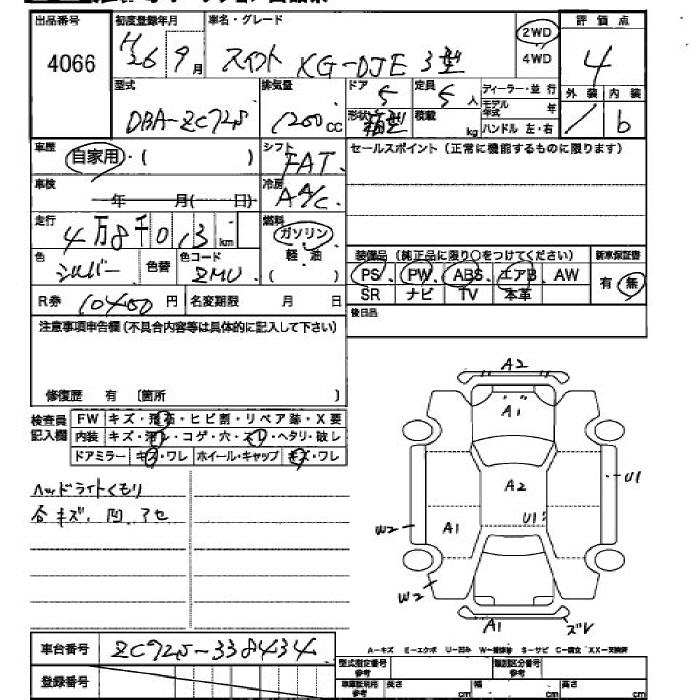 出品番号 初度登録年月 車名・グレード 2WD 評価点
4066 H26 9月 スイフト XG-DJE 3型 4WD 4
型式 排気量 ドア 5 定員 5人 ディーラー・並 行 外装 内装
DBA-ZC72S 1200cc 形状 箱型 積載 kg モデル年式 年 b
ハンドル 左・右
車歴 自家用・( ) シフト FAT セールスポイント (正常に機能するものに限ります)
車検 年 月( 日) 冷房 A A/C
走行 4万8千013km 燃料 ガソリン
軽・油
( )
色 シルバー 色替 色コード ZMU
装備品 (純正品に限り○をつけてください) 新車保証書
PS PW ABS エアB AW 有・無
SR ナビ TV 本革
R券 10400円 名変期限 月 日
後日品
注意事項申告欄 (不具合内容等は具体的に記入して下さい)
修復歴 有 〔箇所 〕
検査員記入欄 FW キズ・飛石・ヒビ割・リペア跡・X要
内装 キズ・汚レ・コゲ・穴・スレ・ヘタリ・破レ
ドアミラー キズ・ワレ ホイール・キャップ キズ・ワレ
ヘッドライトくもり
各キズ、凹、アセ
A2
A1
U1
A2
U1
W2 A1
W2
A1 ズレ
車台番号 ZC72S-338434
A-キズ E-エクボ U-凹ミ W-補修跡 S-サビ C-腐食 XX-交換済
登録番号
型式指定番号 参考 類別区分番号 参考
車庫証明用 参考 長さ cm 幅 cm 高さ cm